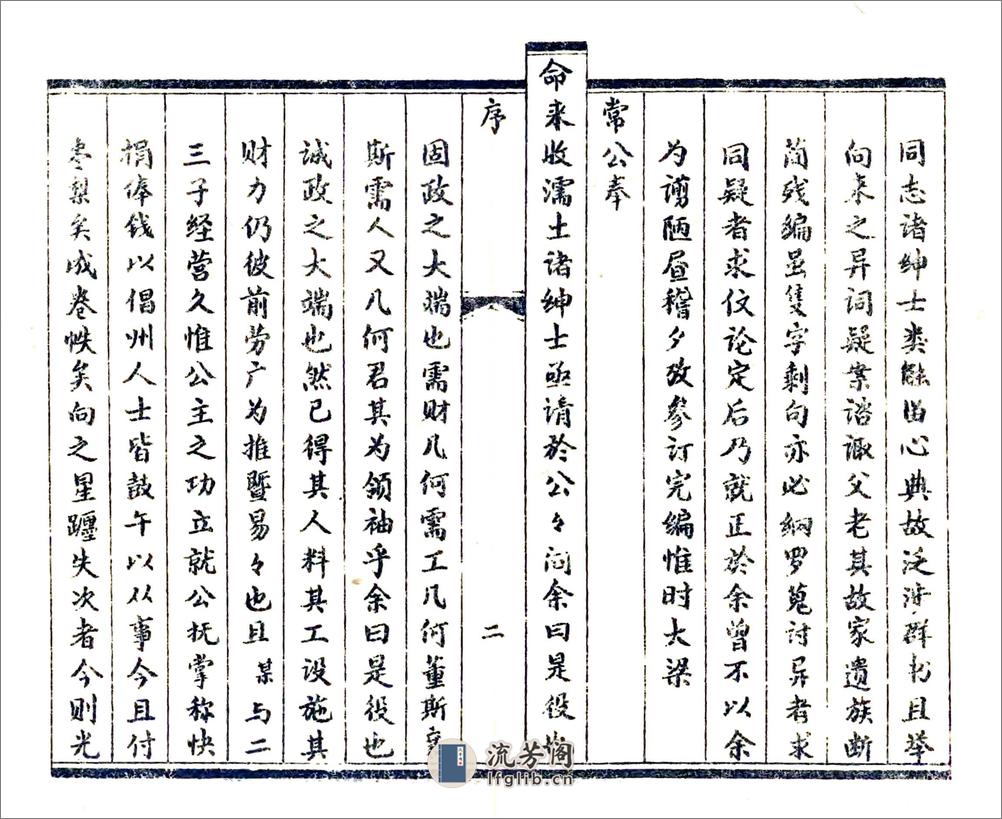 同志诸绅士类能留心典故泛涉群书且举
向来之异词疑案谘诹父老其故家遗族断
简残编虽隻字剩句亦必網罗蒐讨异者求
同疑者求仅论定后乃就正於余曾不以余
为謭陋昼稽夕改参订完编惟时大梁
常公奉
命来收濡土诸绅士亟请於公々问余曰是役也
序 二
固政之大端也需财几何需工几何董斯
斯需人又几何君其为领袖乎余曰是役也
诚政之大端也然已得其人料其工设施其
财力仍彼前劳广为推暨易々也且某与二
三子经营久惟公主之功立就公抚掌称快
捐俸钱以倡州人士皆鼓午以从事今且付
枣梨矣成卷帙矣向之星躔失次者今则光
流芳阁
lfglib.cn